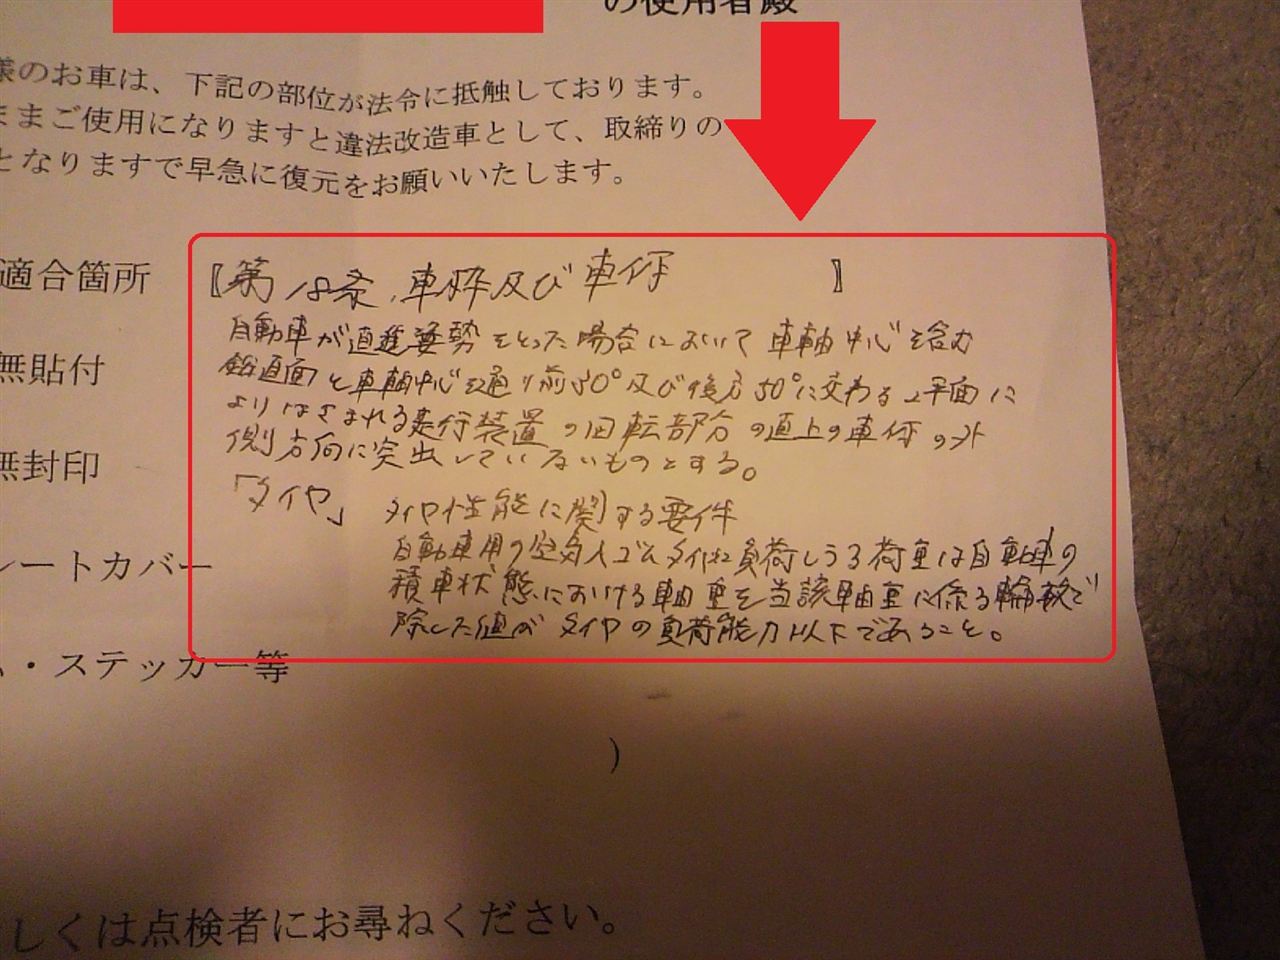 の使用者殿
様のお車は、下記の部位が法令に抵触しております。
ままご使用になりますと違法改造車として、取締りの
となりますで早急に復元をお願いいたします。
適合箇所
〖第18条、車枠及び車体 〗
自動車が直進姿勢をとった場合において車軸中心を含む
鉛直面と車軸中心を通り前30°及び後方50°に交わる2平面に
よりはさまれる走行装置の回転部分の直上の車体の外
側方向に突出していないものとする。
無貼付
無封印
「タイヤ」 タイヤ性能に関する要件
自動車用の空気入ゴムタイヤに負荷しうる荷重は自動車の
積車状態における軸重を当該軸重に係る輪数で
除した値がタイヤの負荷能力以下であること。
レートカバー
ム・ステッカー等
)
しくは点検者にお尋ねください。